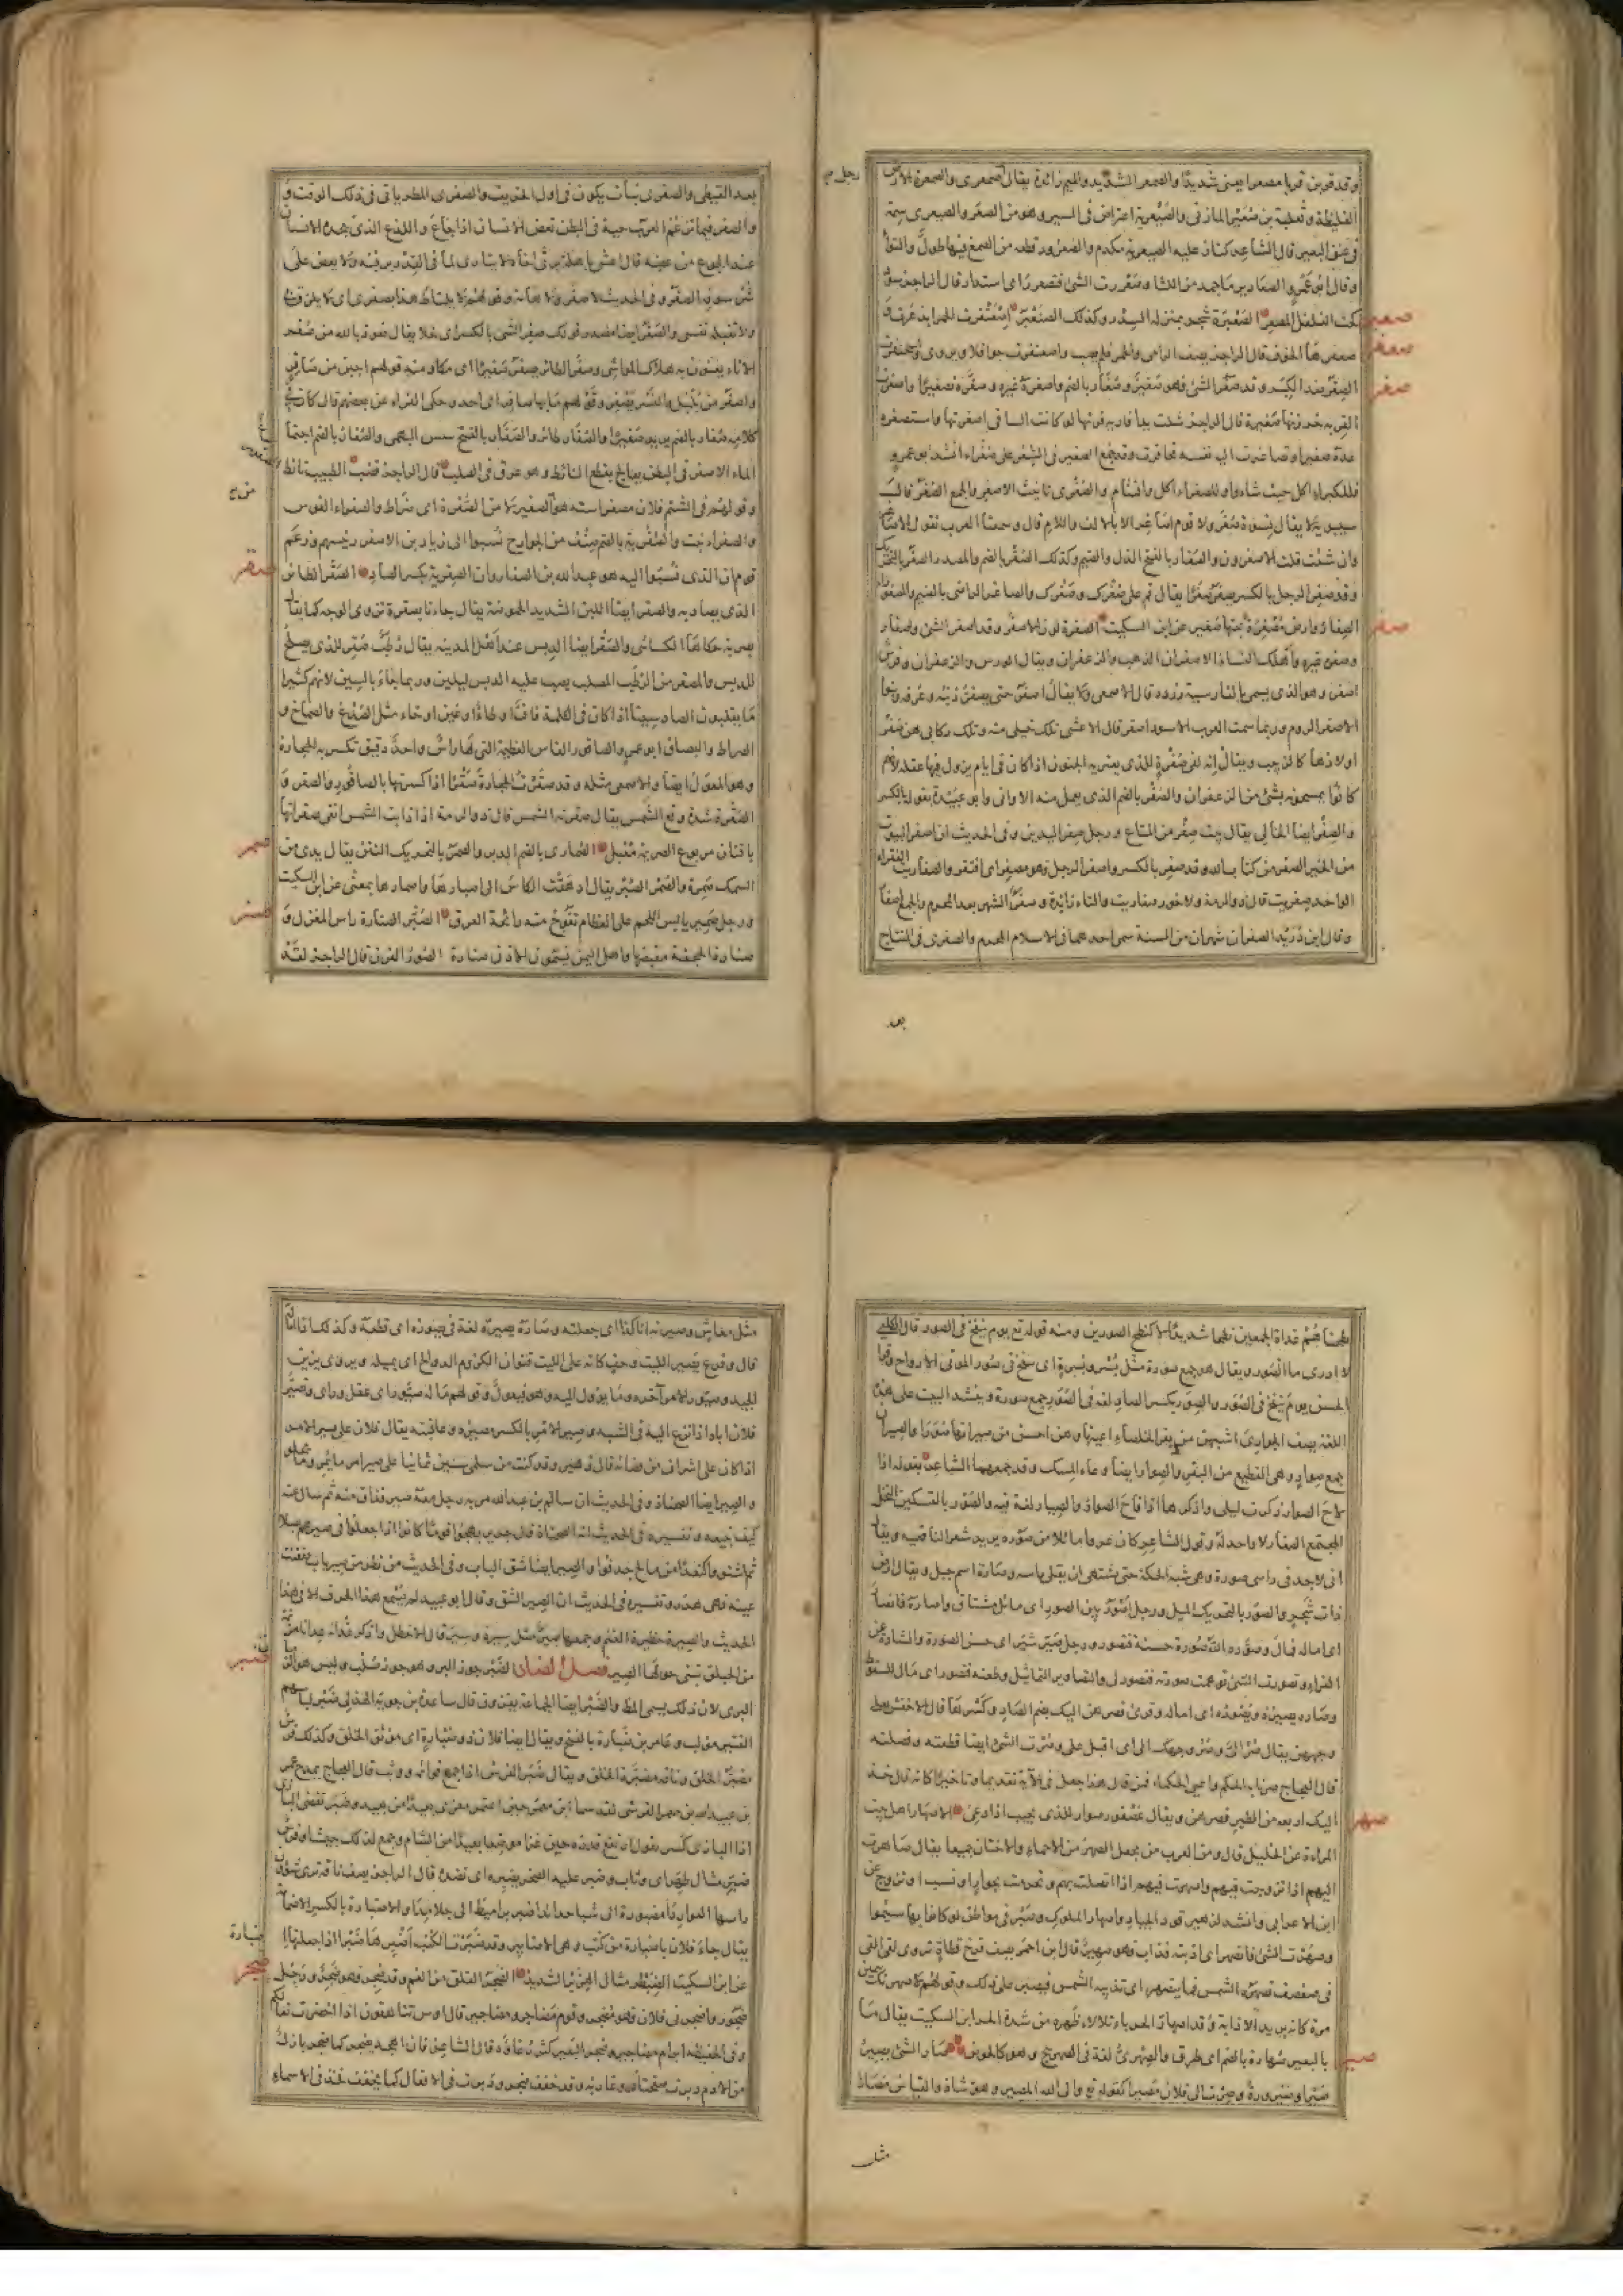 وقد قوبن قربا مصعرا يعني شديدا والصمعر الشديد والميم زائدة يقال صمعري والصمعرة الارض
الغليظة وثعلبة بن صعير المازني والصيعرية اعتراض في السير وهو من الصعر والصيعرية سمة
في عنق البعير قال الشاعر كناز عليه الصيعرية مكدم والصعرور قطعه من الصمغ فيها طول والتواء
وقال ابو عمرو الصعارير ما جمد من اللثا وصعررت الشئ فتصعرر اى استدار قال الراجز سود
كحب الفلفل المصعرر الصعبرة شجر بمنزله السدر وكذلك الصنعبر اصعنفرت الحمر ابذعرت
صعفرها الخوف قال الراجز يصف الرامي والحمر فلم يصب واصعنفرت جوافلا ويروى واسحنفرت
الصغر ضد الكبر وقد صغر الشئ فهو صغير وصغار بالضم واصغره غيره وصغره تصغيرا واصغرت
القربه خرزتها صغيرة قال الراجز شلت يدا فارية فرتها لو كانت الساقى اصغرتها واستصغره
عده صغيرا وتصاغرت اليه نفسه تحاقرت وقد جمع الصغير في الشعر على صغراء انشد ابو عمرو
فللكبراء اكل حيث شاءوا وللصغراء اكل واقتثام والصغرى تانيث الاصغر والجمع الصغر قال
سيبويه لا يقال نسوة صغر ولا قوم اصاغر الا بالالف واللام قال وسمعنا العرب تقول الاصاغر
وان شئت قلت الاصغرون والصغار بالفتح الذل والضيم وكذلك الصغر بالضم والمصدر الصغر بالتحريك
وقد صغر الرجل بالكسر يصغر صغرا يقال قم على صغرك وصغرك والصاغر الراضى بالضيم
صعبر
صعفر
صغر
صفر
الصفرة لون الاصفر وقد اصفر الشئ واصفار
وصفره غيره واهلك النساء الاصفران الذهب والزعفران ويقال الورس والزعفران وفرس
اصفر وهو الذي يسمى بالفارسية زرده قال الاصمعى ولا يقال اصفر حتى يصفر ذنبه وعرفه
الاصفر الروم وربما سمت العرب الاسود اصفر قال الاعشى تلك خيلى منه وتلك ركابى هن صفر
اولادها كالزبيب ويقال انه لفى صفرة للذى يعتريه الجنون اذا كان فى ايام يزول فيها عقله لانهم
كانوا يمسحونه بشئ من الزعفران والصفر بالضم الذى يعمل منه الاوانى وابو عبيدة يقوله بالكسر
والصفر ايضا الخالى يقال بيت صفر من المتاع ورجل صفر اليدين وفى الحديث ان اصفر البيوت
من الخير الصفر من كتاب الله وقد صفر بالكسر واصفر الرجل فهو مصفر اى افتقر والصفاريت الفقراء
الواحد صفريت قال ذو الرمة ولا خور صفاريت والتاء زائدة وصفر الشهر بعد المحرم والجمع اصفار
وقال ابن دريد الصفران شهران من السنة سمى احدهما فى الاسلام المحرم والصفرى فى النتاج
بعد
بعد القيظى والصفرى نبات يكون فى اول الخريف والصفرى المطر ياتى فى ذلك الوقت
والصفر فيما تزعم العرب حية فى البطن تعض الانسان اذا جاع واللذع الذى يجده الانسان
عند الجوع من عضه قال اعشى باهلة يرثى اخاه لا يتارى لما فى القدر يرقبه ولا يعض على
شرسوفه الصفر وفى الحديث لا صفر ولا هامة وقولهم لا يلتاط هذا بصفرى اى لا يلزق بى
ولا تقبله نفسى والصفر ايضا مصدر قولك صفر الشئ بالكسر اى خلا يقال نعوذ بالله من صفر
الاناء يعنون به هلاك المواشى وصفر الطائر يصفر صفيرا اى مكا ومنه قولهم اجبن من صافر
واصفر من بلبل والنسر يصفر وقولهم ما بها صافر اى احد وحكى الفراء عن بعضهم قال كان فى
كلامه صفار بالضم يريد صفيرا والصفارة طائر والصفار بالفتح يبيس البهمى والصفار بالضم اجتماع
الماء الاصفر فى البطن يعالج بقطع النائط وهو عرق فى الصلب قال الراجز قضب الطبيب نائط
وقولهم فى الشتم فلان مصفر استه هو من الصفير لا من الصفرة اى ضراط والصفراء القوس
والصفراء نبت والصفرية بالضم صنف من الخوارج نسبوا الى زياد بن الاصفر رئيسهم وزعم
قوم ان الذى نسبوا اليه هو عبد الله بن الصفار وان الصفرية بكسر الصاد الصقر الطائر
الذى يصاد به والصقر ايضا اللبن الشديد الحموضة يقال جاءنا بصقرة تزوى الوجه كما يقال
بصربة حكاهما الكسائى والصقر ايضا الدبس عند اهل المدينه يقال رطب صقر للذى يصلح
للدبس والمصقر من الرطب المصلب يصب عليه الدبس ليلين وربما جاء بالسين لانهم كثيرا
ما يقلبون الصاد سينا اذا كان فى الكلمة قاف او طاء او غين او خاء مثل الصدغ والصماخ و
الصراط والبصاق ابو عمرو الصاقور الفاس العظيمة التى لها راس واحد دقيق تكسر به الحجارة
وهو المعول ايضا والاصمعى مثله وقد صقرت الحجارة صقرا اذا كسرتها بالصاقور والصقر و
الصقرة شدة وقع الشمس يقال صقرته الشمس قال ذو الرمة اذا ذابت الشمس اتقى صقراتها
بافنان مربوع الصريمة معبل الصمارى بالضم الدبر والصمر بالتحريك النتن يقال يدى من
السمك صمرة والصمر الصبر يقال ادهقت الكاس الى اصبارها واصمارها بمعنى عن ابن السكيت
ورجل صمير يابس اللحم على العظام تفوح منه رائحة العرق الصنبر الصنارة راس المغزل و
صنارة الجحفة مقبضها واهل اليمن يسمون الاذن صنارة الصور القرن قال الراجز لقد
صقر
صمر
صنر
نطحناهم غداة الجمعين نطحا شديدا لا كنطح الصورين ومنه قوله تع يوم ينفخ فى الصور قال الكلبى
لا ادرى ما الصور ويقال هو جمع صورة مثل بسر وبسرة اى ينفخ فى صور الموتى الارواح وقرا
الحسن يوم ينفخ فى الصور والصور بكسر الصاد لغة فى الصور جمع صورة وينشد البيت على هذه
اللغة يصف الجوارى اشبهن من بقر الخلصاء اعينها وهن احسن من صيرانها صورا والصيران
جمع صوار وهى القطيع من البقر والصوار ايضا وعاء المسك وقد جمعهما الشاعر بقوله اذا
لاح الصوار ذكرت ليلى واذكرها اذا فاح الصوار والصيار لغة فيه والصور بالتسكين النخل
المجتمع الصغار لا واحد له وقول الشاعر كان عرفا مائلا من صوره يريد شعر الناصيه ويقال
انى لاجد فى راسى صورة وهى شبه الحكة حتى يشتهى ان يفلى راسه وصارة اسم جبل ويقال ارض
ذات شجر والصور بالتحريك الميل ورجل اصور بين الصور اى مائل مشتاق واصاره فانصار
اى اماله فمال وصوره الله صورة حسنة فتصور ورجل صير شير اى حسن الصورة والشارة عن
الفراء وتصورت الشئ توهمت صورته فتصور لى والتصاوير التماثيل وطعنه فتصور اى مال للسقوط
وصاره يصيره ويصوره اى اماله وقرئ فصرهن اليك بضم الصاد وكسرها قال الاخفش يعنى
وجههن يقال صر الى وصر وجهك الى اى اقبل على وصرت الشئ ايضا قطعته وفصلته
قال العجاج صرنا به الحكم واعيى الحكما فمن قال هذا جعل فى الاية تقديما وتاخيرا كانه قال خذ
اليك اربعة من الطير فصرهن ويقال عصفور صوار للذى يجيب اذا دعى الاصهار اهل بيت
المراة عن الخليل قال ومن العرب من يجعل الصهر من الاحماء والاختان جميعا يقال صاهرت
اليهم اذا تزوجت فيهم واصهرت فيهم اذا اتصلت بهم وتحرمت بجوار او نسب او تزوج عن
ابن الاعرابى وانشد لزهير قود الجياد واصهار الملوك وصبر فى مواطن لو كانوا بها سئموا
وصهرت الشئ فانصهر اى اذبته فذاب فهو صهير قال ابن احمر يصف فرخ قطاة تروى لقى القى
فى صفصف تصهره الشمس فما ينصهر اى تذيبه الشمس فيصبر على ذلك
صهر
صير
بالبعير صهارة بالضم اى طرق والصهرى لغة فى الصهريج وهو كالحوض صار الشئ يصير
صيرا وصيرورة وصرت الى فلان مصيرا كقوله تع والى الله المصير وهو شاذ والقياس مصار
مثل
مثل معاش وصيرته انا كذا اى جعلته وصاره يصيره لغة فى يصوره اى قطعه وكذلك اذا اماله
قال وفرع يصير الليت وحف كانه على الليت قنوان الكروم الدوالح اى يميله ويروى يزين
الجيد وصيور الامر آخره وما يؤول اليه وهو فيعول وقولهم ما له صيور اى عقل وراى وتصير
فلان اباه اذا نزع اليه فى الشبه وصير الامر بالكسر مصيره وعاقبته يقال فلان على صير الامر
اذا كان على اشراف من قضائه قال زهير وقد كنت من سلمى سنين ثمانيا على صير امر ما يمر وما يحلو
والصير ايضا الصحناة وفى الحديث ان سالم بن عبد الله مر به رجل معه صير فذاق منه ثم سال عنه
كيف تبيعه وتفسيره فى الحديث انه الصحناة قال جرير يهجو قوما كانوا اذا جعلوا فى صيرهم بصلا
ثم اشتووا كنعدا من مالح جدفوا والصير ايضا شق الباب وفى الحديث من نظر من صير باب ففقئت
عينه فهى هدر وتفسيره فى الحديث ان الصير الشق وقال ابو عبيد لم يسمع هذا الحرف الا فى هذا
الحديث والصيرة حظيرة الغنم وجمعها صير مثل سيرة وسير قال الاخطل واذكر غدانة عدانا مزنمة
من الحبلق تبنى حولها الصير فصل الضاد الضبر جوز البر وهو جوز صلب وليس هو الرمان
البرى لان ذلك يسمى المظ والضبر ايضا الجماعة يغزون قال ساعدة بن جوية الهذلى ضبر لباسهم
القتير مولب وعامر بن ضبارة بالفتح ويقال ايضا فلان ذو ضبارة اى موثق الخلق وكذلك فرس
مضبر الخلق وناقة مضبرة الخلق ويقال ضبر الفرس اذا جمع قوائمه ووثب قال العجاج يمدح عمر
بن عبيد الله بن معمر القرشى لقد سما ابن معمر حين اعتمر مغزى بعيدا من بعيد وضبر تقضى البازى
اذا البازى كسر يقول ارتفع قدره حين غزا موضعا بعيدا من الشام وجمع لذلك جيشا وفرس
ضبر مثال طمر اى وثاب وضبر عليه الصخر يضبره اى نضده قال الراجز يصف ناقة ترى شؤون
راسها العواردا مضبورة الى شبا حدائدا ضبر براطيل الى جلامدا والاضبارة بالكسر الاضمامة
يقال جاء فلان باضبارة من كتب وهى الاضابير وقد ضبرت الكتب اضبرها ضبرا اذا جعلتها
عن ابن السكيت الضبطر مثال الهزبر الشديد الضجر القلق من الغم وقد ضجر فهو ضجر ورجل
ضجور واضجرنى فلان فهو مضجر وقوم مضاجر ومضاجير قال اوس تناهقون اذا اخضرت نعالكم
وفى الحفيظة ابرام مضاجير وضجر البعير كثر رغاؤه قال الشاعر فان اهجه يضجر كما ضجر بازل
من الادم دبرت صفحتاه وغاربه وقد خفف ضجر ودبرت فى الافعال كما يخفف فخذ فى الاسماء
ضبر
ضبارة
ضجر